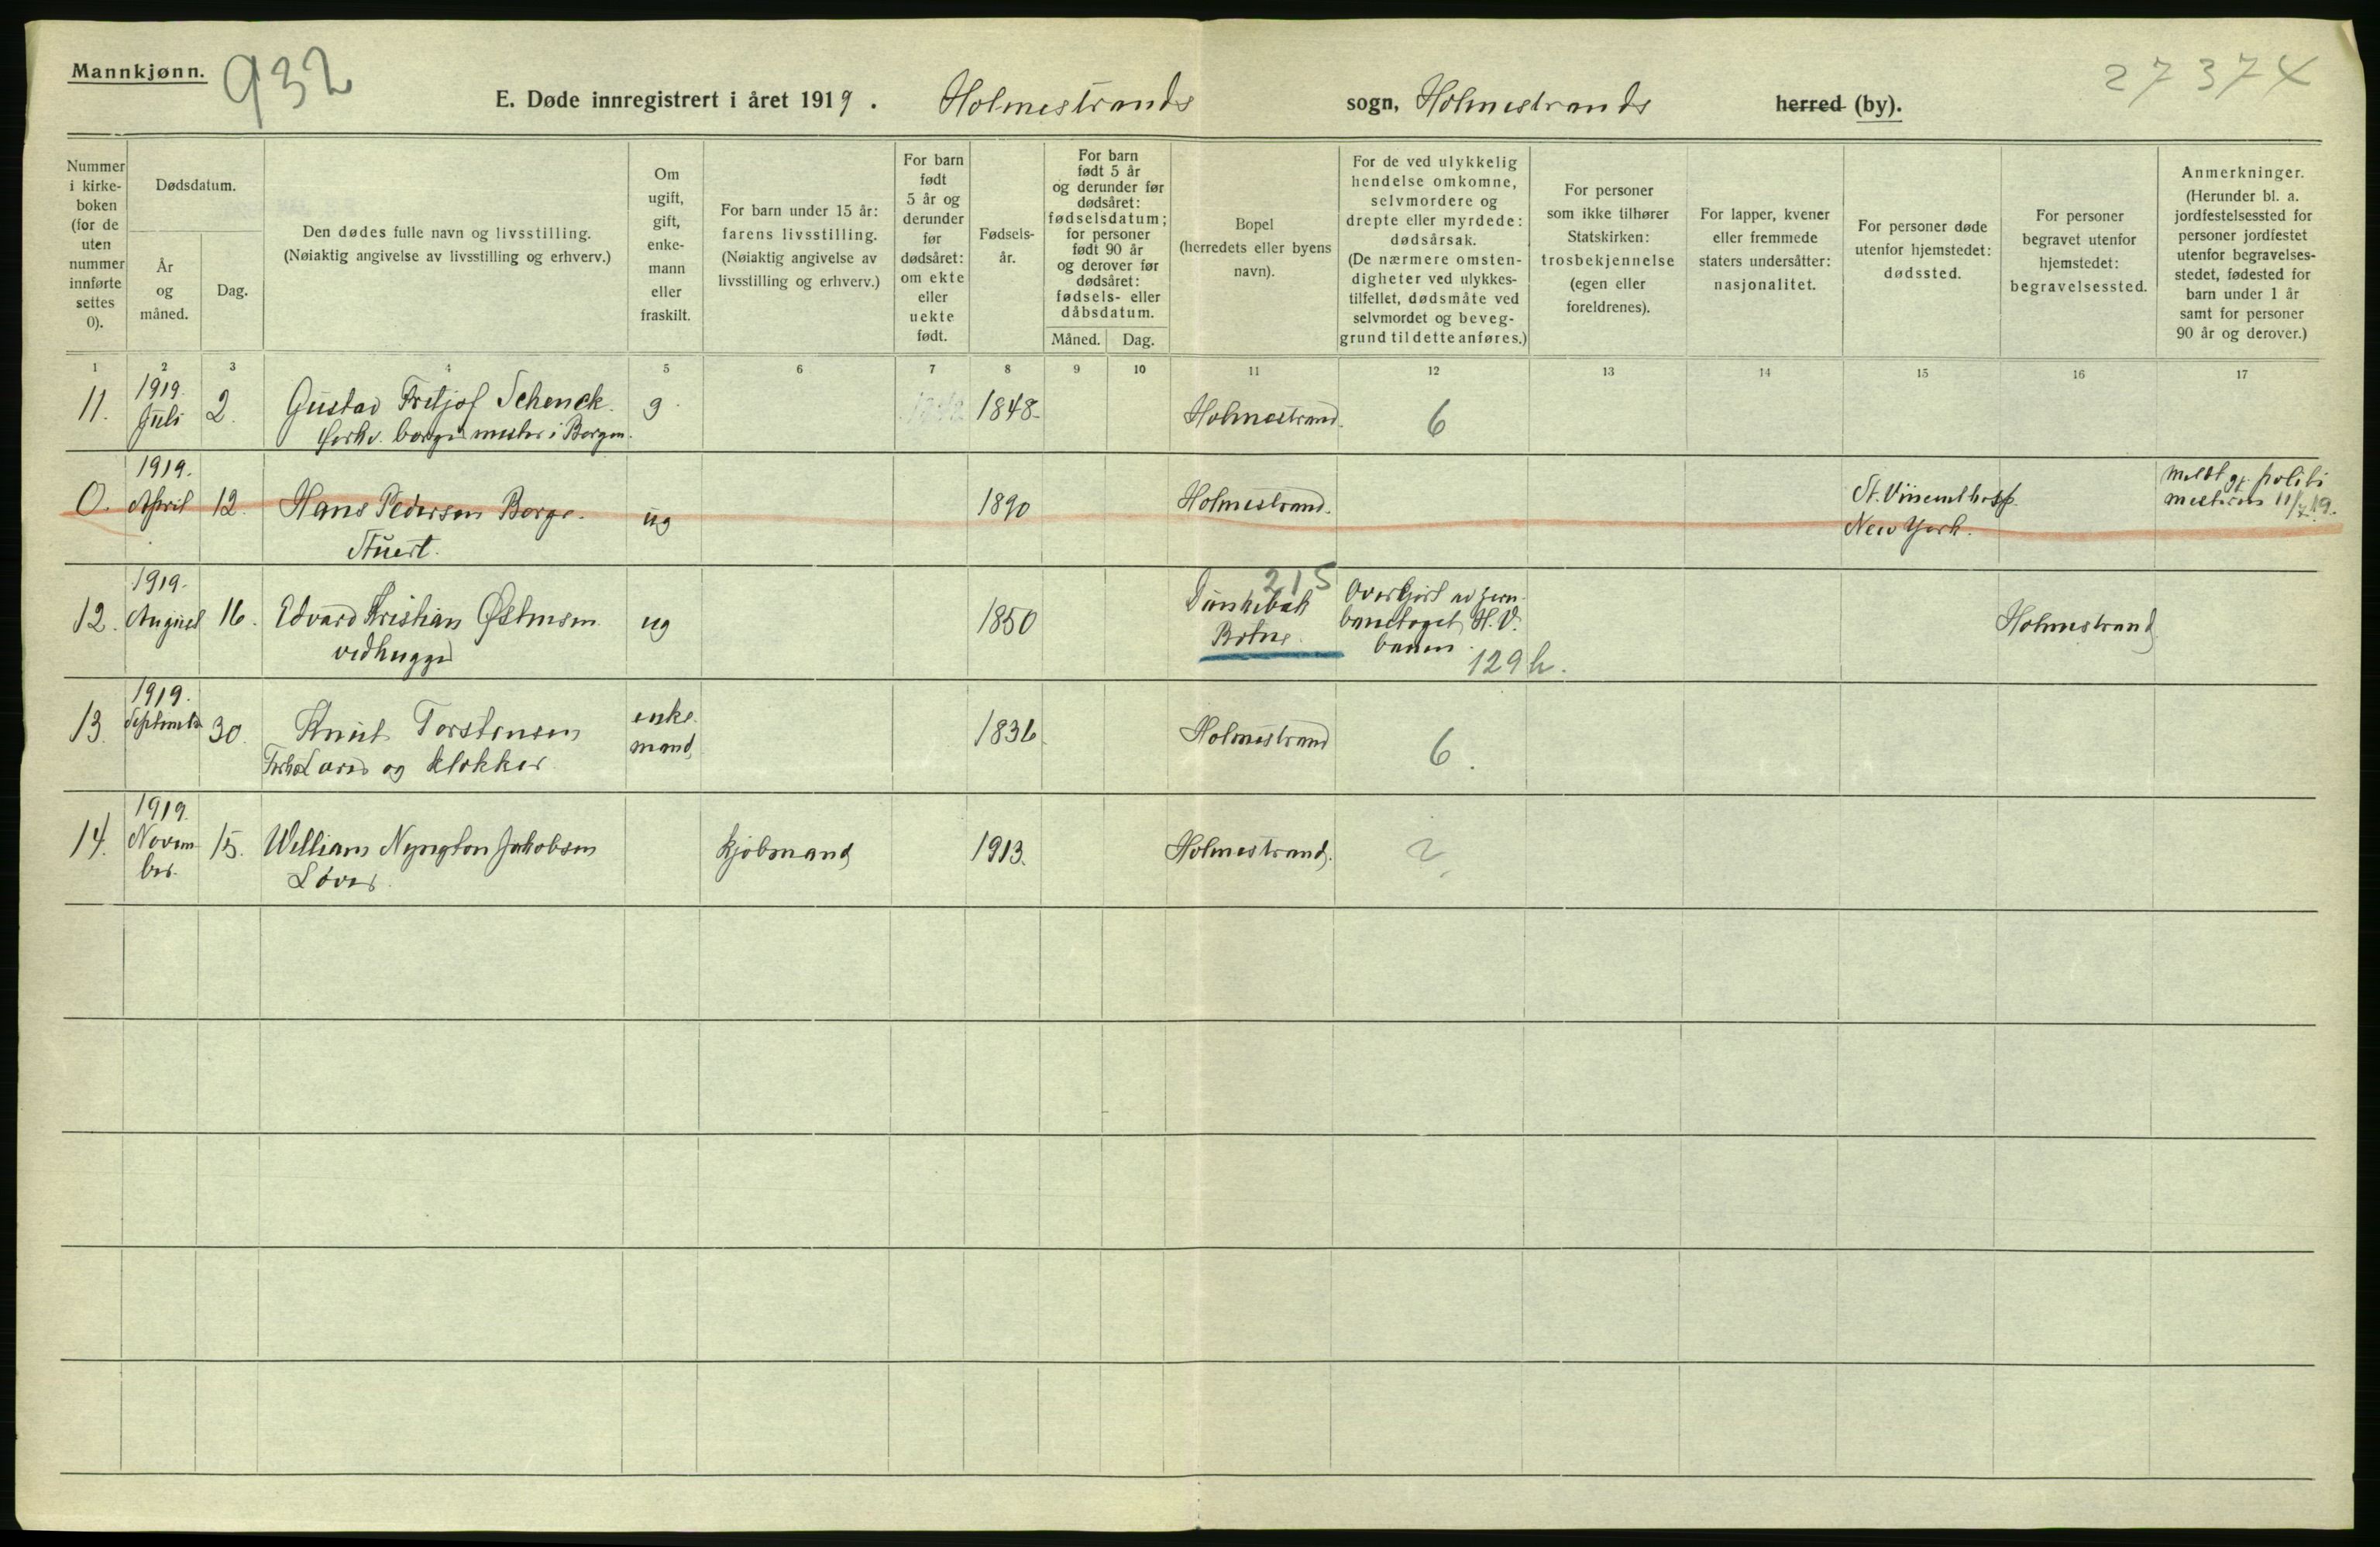 Mannkjønn.
932
27374
E. Døde innregistrert i året 1919. Holmestrands sogn, Holmestrands herred (by).
Nummer i kirke- boken (for de uten nummer innførte settes 0).
Dødsdatum.
År og måned.
Dag.
Den dødes fulle navn og livsstilling.
(Nøiaktig angivelse av livsstilling og erhverv.)
Om ugift, gift, enke- mann eller fraskilt.
For barn under 15 år: farens livsstilling. (Nøiaktig angivelse av livsstilling og erhverv.)
For barn født 5 år og derunder før dødsåret: om ekte eller uekte født.
Fødsels- år.
For barn født 5 år og derunder før dødsåret: fødselsdatum; for personer født 90 år og derover før dødsåret: fødsels- eller dåbsdatum.
Måned. Dag.
Bopel (herredets eller byens navn).
For de ved ulykkelig hendelse omkomne, selvmordere og drepte eller myrdede: dødsårsak. (De nærmere omsten- digheter ved ulykkes- tilfellet, dødsmåte ved selvmordet og beveg- grund til dette anføres.)
For personer som ikke tilhører Statskirken: trosbekjennelse (egen eller foreldrenes).
For lapper, kvener eller fremmede staters undersåtter: nasjonalitet.
For personer døde utenfor hjemstedet: dødssted.
For personer begravet utenfor hjemstedet: begravelsessted.
Anmerkninger. (Herunder bl. a. jordfestelsessted for personer jordfestet utenfor begravelses- stedet, fødested for barn under 1 år samt for personer 90 år og derover.)
1 2 3 4 5 6 7 8 9 10 11 12 13 14 15 16 17
11. 1919. Juli 2. Gustav Fritjof Schenck. g. 1848. Holmestrand. 6
forhv. borgermester i Bergen.
0. 1919. April 12. Hans Pedersen Borge. ug 1890 Holmestrand. St. Vincent hosp. New York. meldt gj. politi mesteren 11/7 19.
Stuert.
12. 1919. August 16. Edvard Kristian Østensen ug 1850 Botne. 215 Overkjørt av jern- banetoget H.V. banen. 129 h. Holmestrand
vedhugger
13. 1919. September 30. Knut Torstensen enke mand 1836. Holmestrand 6.
Forhv. Lærer og klokker
14. 1919. Novem ber. 15. William Jakobsen kjøbmand 1913. Holmestrand. 2